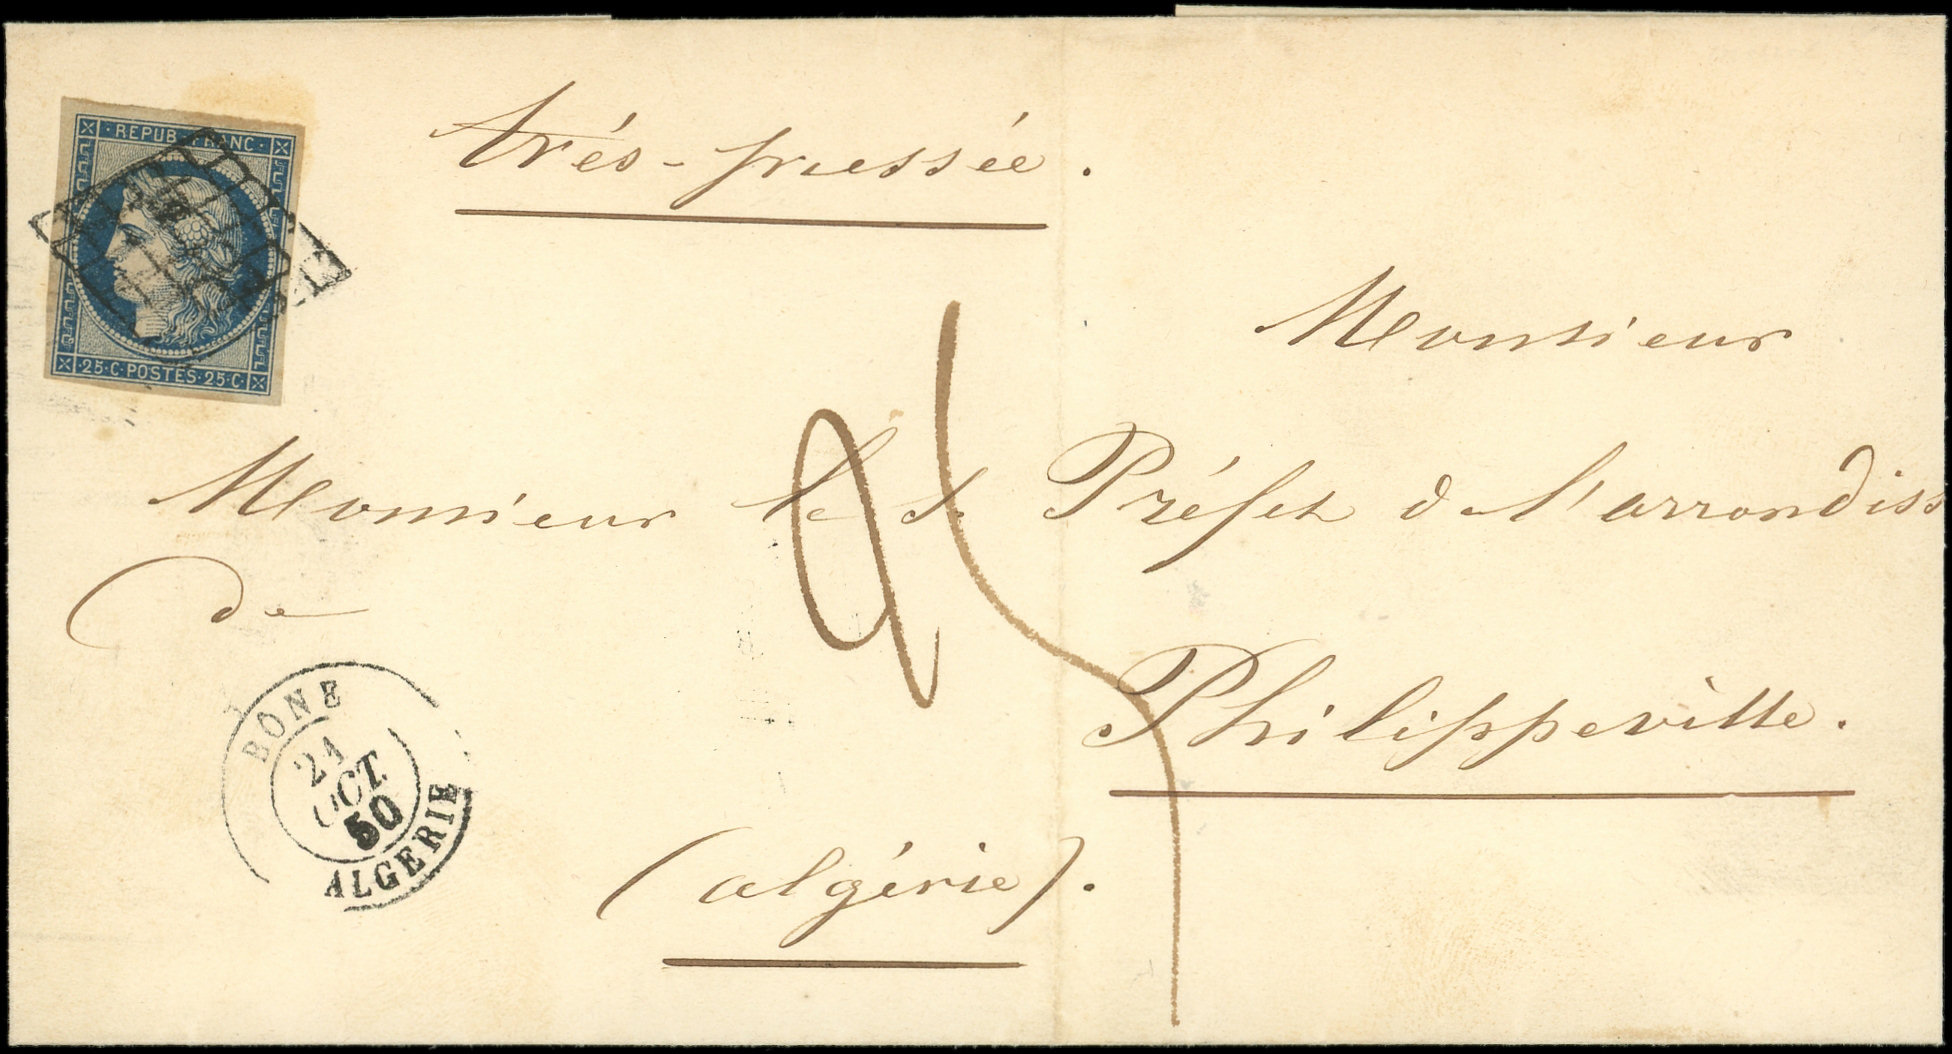 REPUB. FRANC.
25·C·POSTES·25·C
très-pressée.
Monsieur
Monsieur le S. Préfet de l'arrondiss
de
Philippeville.
(algérie).
25
BÔNE
21
OCT.
50
ALGERIE